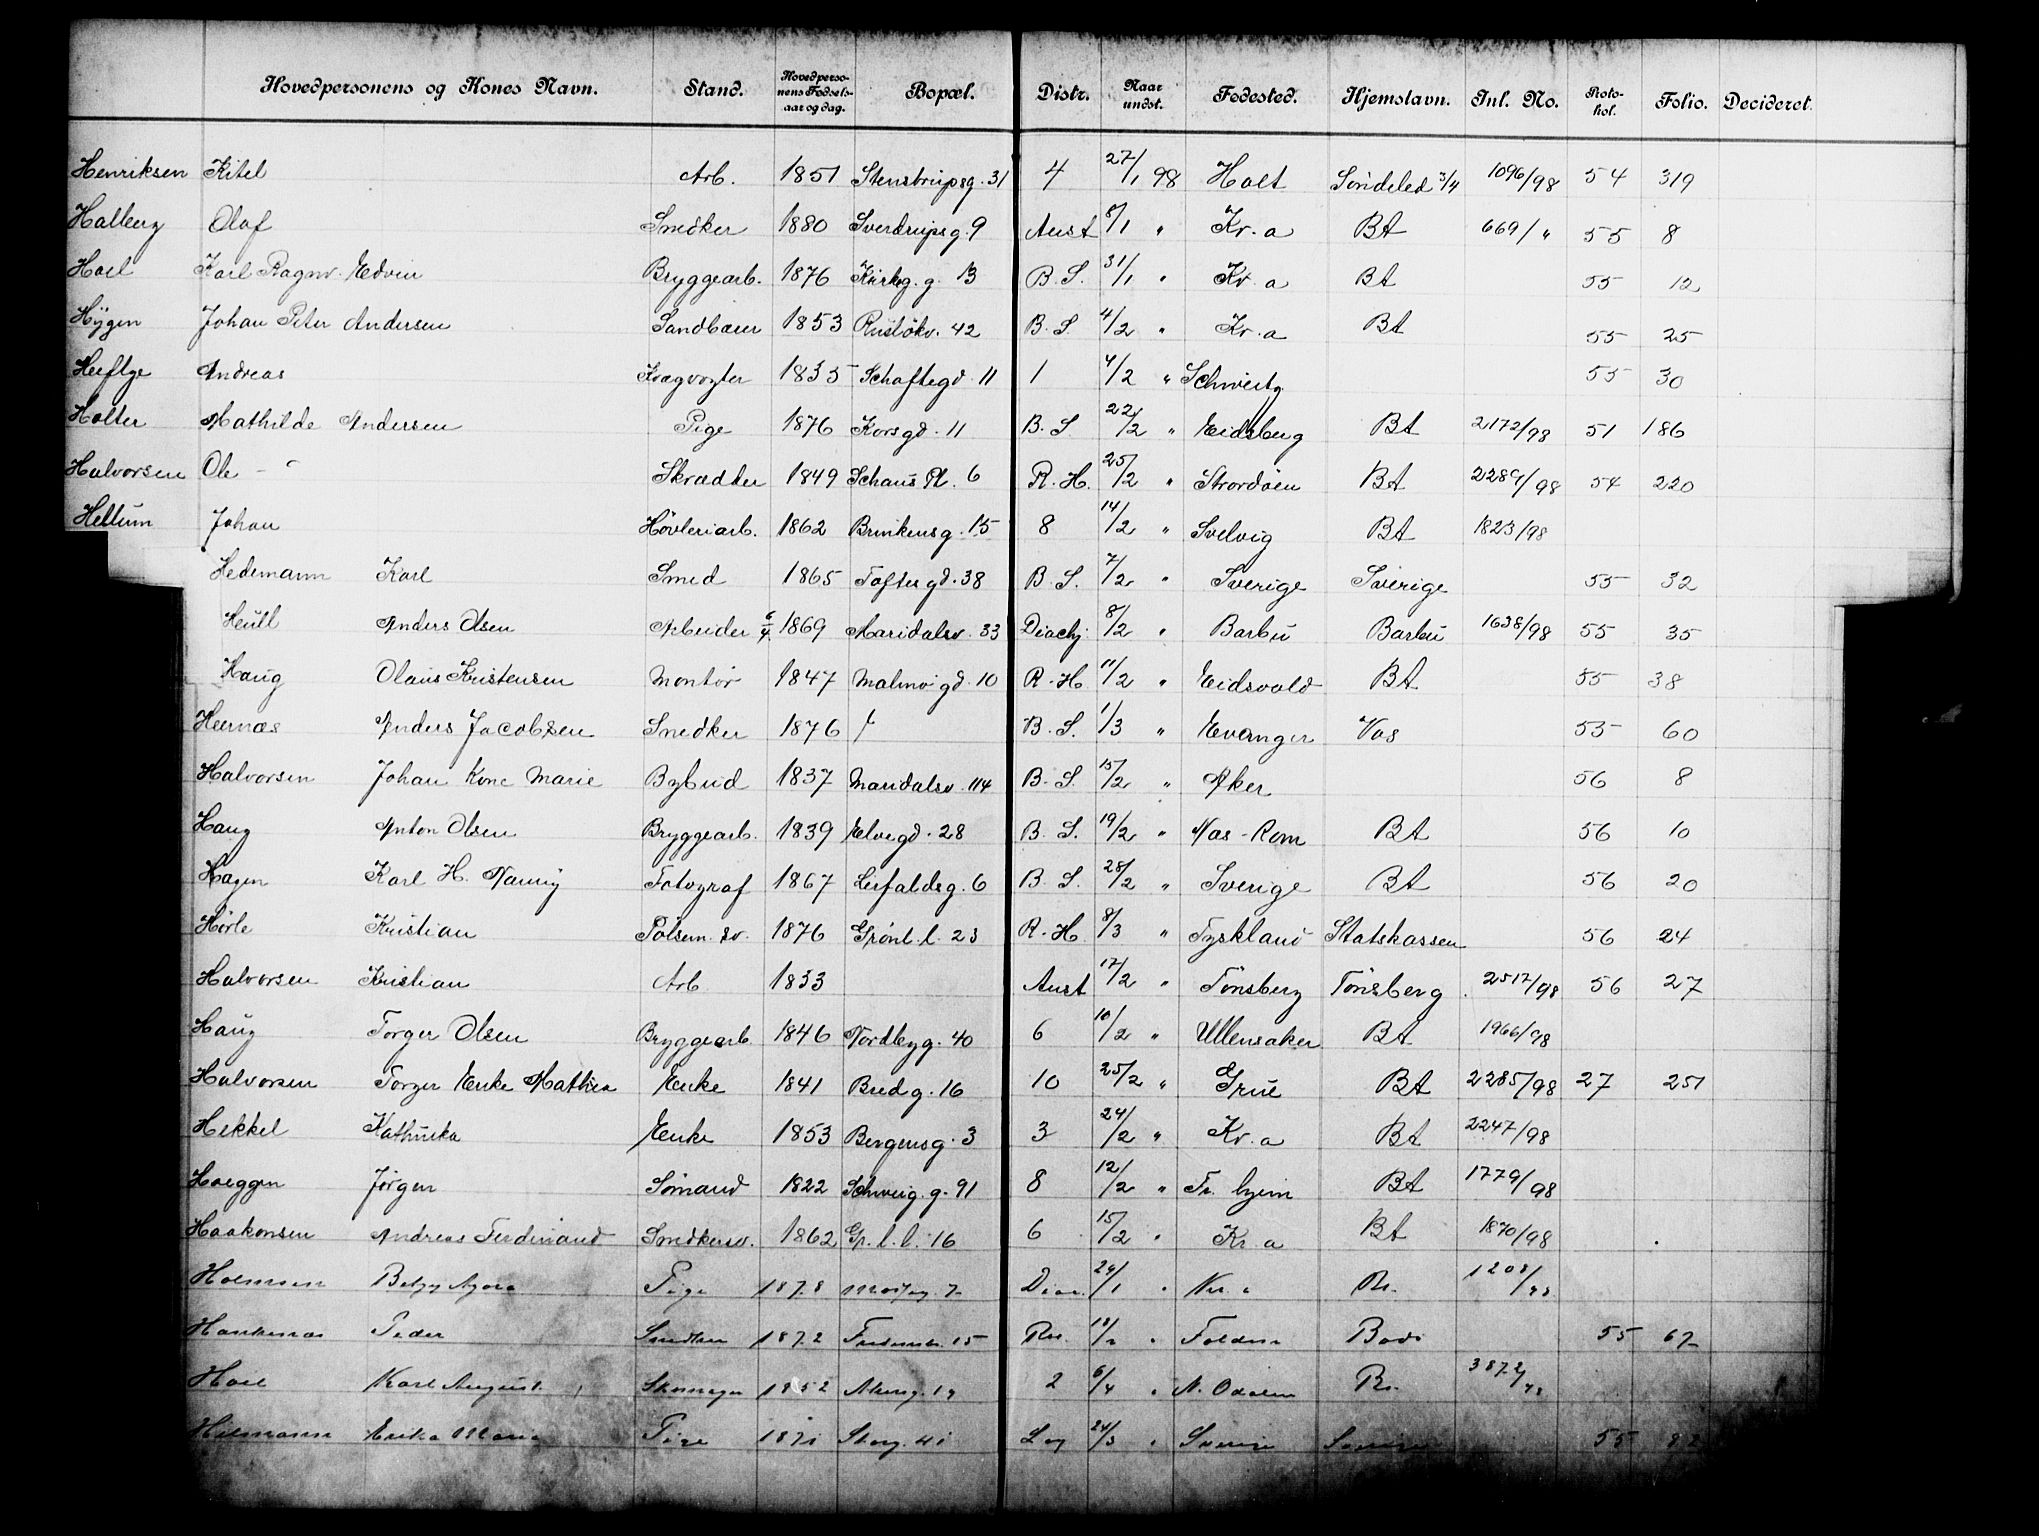 Hovedpersonens og Kones Navn. Stand. Hovedperso-nens Fødsels-aar og dag. Bopæl. Distr. Naar undst. Fødested. Hjemstavn. Inl. No. Proto-kol. Folio. Decideret.
Henriksen Kitel Arb. 1851 Stenstrupsg. 31 4 27/1 98 Holt Søndeled 3/4 1096/98 54 319
Halberg Olaf Snedker 1880 Sverdrupsg. 9 Aust 8/1 " Kr.a BA 669/" 55 8
Hoel Karl Ragnv. Edvin Bryggearb. 1876 Kirkeg. g. 13 B.S. 31/1 " Kr.a BA 55 12
Hygen Johan Peter Andersen Sandbærer 1853 Ruseløkv. 42 B.S. 4/2 " Kr.a BA 55 25
Andreas Kvægvogter 1835 Schaftegd. 11 1 4/2 " 55 30
Holter Mathilde Andersen Pige 1876 Korsgd. 11 B.S. 22/2 " Eidsberg BA 2172/98 51 186
Halvorsen Ole - " Skrædder 1849 Schaus Pl. 6 R.H. 25/2 " Strordøen BA 2289/98 54 220
Hellum Johan Høvleriarb. 1862 Brinkensg. 15 8 14/2 " Svelvig BA 1823/98
Hedemann Karl Smed 1865 Toftesgd. 38 B.S. 7/2 " Sverige Sverige 55 32
Heull Anders Olsen Arbeider 6/4 1869 Maridalsv. 33 Diachj. 8/2 " Barbu Barbu 1638/98 55 35
Haug Olaus Kristensen Montør 1847 Malmøgd. 10 R.H. 11/2 " Eidsvold BA 55 38
Hernæs Anders Jacobsen Snedker 1876 B.S. 1/3 " Evanger Vos 55 60
Halvorsen Johan Kone Marie Bybud 1837 Maridalsv. 114 B.S. 15/2 " Aker 56 8
Haug Anton Olsen Bryggearb. 1839 Elvegd. 28 B.S. 19/2 " Næs-Rom BA 56 10
Hagen Karl H. Nanny Fotograf 1867 Leirfaldsg. 6 B.S. 28/2 " Sverige BA 56 20
Hørle Kristian Pølsem. sv. 1876 Grønl. l. 23 R.H. 8/3 " Tyskland Statskassen 56 24
Halvorsen Kristian Arb 1833 Aust 17/2 " Tønsberg Tønsberg 2517/98 56 27
Haug Torger Olsen Bryggearb 1846 Nordbyg. 40 6 10/2 " Ullensaker BA 1966/98
Halvorsen Torger Enke Mathea Enke 1841 Bredg. 16 10 25/2 " Grue BA 2285/98 27 251
Hekkel Kathinka Enke 1853 Bergensg. 3 3 24/2 " Kr.a BA 2247/98
Hoeggen Jørgen Sømand 1822 Schweig.g. 91 8 12/2 " Tr.hjem BA 1779/98
Haakonsen Andreas Ferdinand Snedkersv. 1862 Gr.l.l. 16 6 15/2 " Kr.a BA 1870/98
Holmsen Betzy Agora Pige 1878 7 24/1 " Kr.a 1208/98
Peder Snedker 1872 15 18/2 " Folden Bodø 55 67
Hoel Karl August Skomager 1852 Akersg. 19 2 6/4 " N. Odalen 3872/98
Erika Maria Pige 1871 Storg. 41 24/3 " Sverige Sverige 55 82